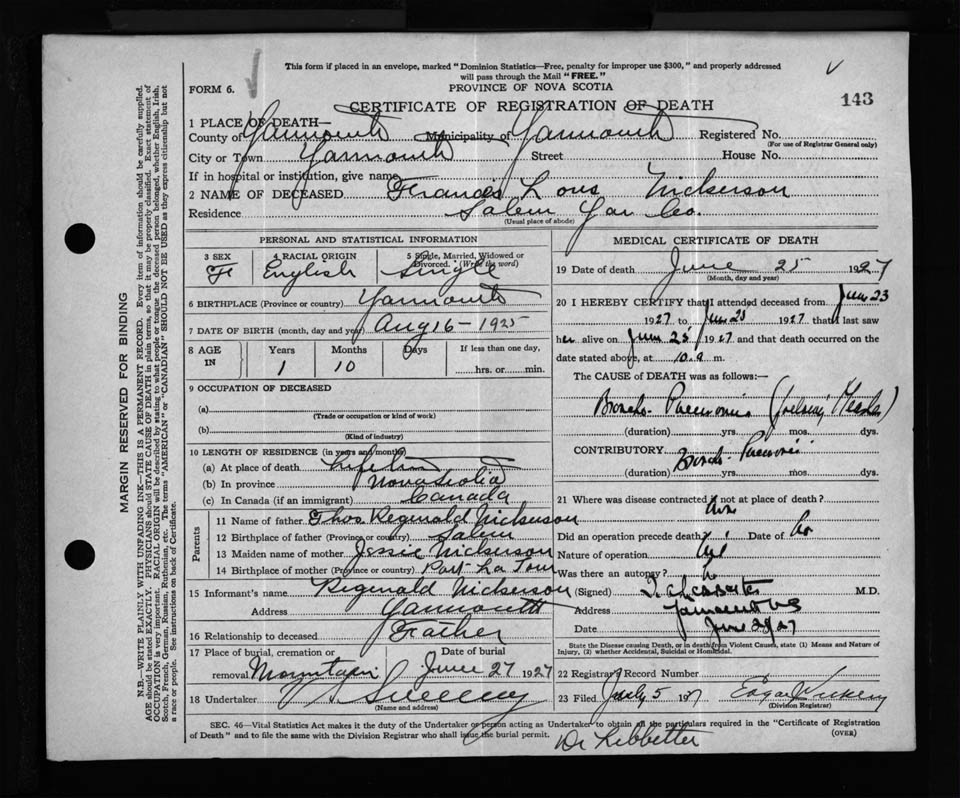 This form if placed in an envelope, marked "Dominion Statistics—Free, penalty for improper use $300," and properly addressed
will pass through the Mail "FREE."
FORM 6.
PROVINCE OF NOVA SCOTIA
CERTIFICATE OF REGISTRATION OF DEATH
143
1 PLACE OF DEATH—
County of Yarmouth Municipality of Yarmouth Registered No.
(For use of Registrar General only)
City or Town Yarmouth Street House No.
If in hospital or institution, give name
2 NAME OF DECEASED Francis Nickerson
Residence Salem Yar Co.
(Usual place of abode)
PERSONAL AND STATISTICAL INFORMATION
3 SEX F
4 RACIAL ORIGIN English
5 Single, Married, Widowed or Divorced. (Write the word) Single
6 BIRTHPLACE (Province or country) Yarmouth
7 DATE OF BIRTH (month, day and year) Aug 16 - 1925
8 AGE IN Years Months Days If less than one day,
1 10 hrs. or min.
9 OCCUPATION OF DECEASED
(a)
(Trade or occupation or kind of work)
(b)
(Kind of industry)
10 LENGTH OF RESIDENCE (in years and months)
(a) At place of death
(b) In province Nova Scotia
(c) In Canada (if an immigrant) Canada
Parents
11 Name of father Thos Reginald Nickerson
12 Birthplace of father (Province or country) Salem
13 Maiden name of mother Jessie Nickerson
14 Birthplace of mother (Province or country) Port La Tour
15 Informant's name Reginald Nickerson
Address Yarmouth
16 Relationship to deceased Father
17 Place of burial, cremation or removal Mountain Date of burial June 27 1927
18 Undertaker Sweeny
(Name and address)
MEDICAL CERTIFICATE OF DEATH
19 Date of death June 25 1927
(Month, day and year)
20 I HEREBY CERTIFY that I attended deceased from June 23
1927 to June 25 1927 that I last saw
her alive on June 25 1927 and that death occurred on the
date stated above, at 10. a m.
The CAUSE of DEATH was as follows:—
Broncho-Pneumonia (following Measles)
(duration) yrs. mos. dys.
CONTRIBUTORY Broncho-Pneumonia
(duration) yrs. mos. dys.
21 Where was disease contracted if not at place of death?
Did an operation precede death? Date of
Nature of operation
Was there an autopsy?
(Signed) M.D.
Address Yarmouth NS
Date June 27
State the Disease causing Death, or in death from Violent Causes, state (1) Means and Nature of
Injury, (2) whether Accidental, Suicidal or Homicidal.
22 Registrar's Record Number
23 Filed July 5 1927 Edgar
(Division Registrar)
SEC. 46—Vital Statistics Act makes it the duty of the Undertaker or person acting as Undertaker to obtain all the particulars required in the "Certificate of Registration
of Death" and to file the same with the Division Registrar who shall issue the burial permit.
(OVER)
Dr Libbetter
MARGIN RESERVED FOR BINDING
N.B.—WRITE PLAINLY WITH UNFADING INK—THIS IS A PERMANENT RECORD. Every item of information should be carefully supplied.
AGE should be stated EXACTLY. PHYSICIANS should STATE CAUSE OF DEATH in plain terms, so that it may be properly classified. Exact statement of
OCCUPATION is very important. RACIAL ORIGIN will be described by stating to what people or tongue the deceased person belonged, whether English, Irish,
Scotch, French, German, Russian, Ruthenian, etc. The terms "AMERICAN" or "CANADIAN" SHOULD NOT BE USED as they express citizenship but not
a race or people. See instructions on back of Certificate.